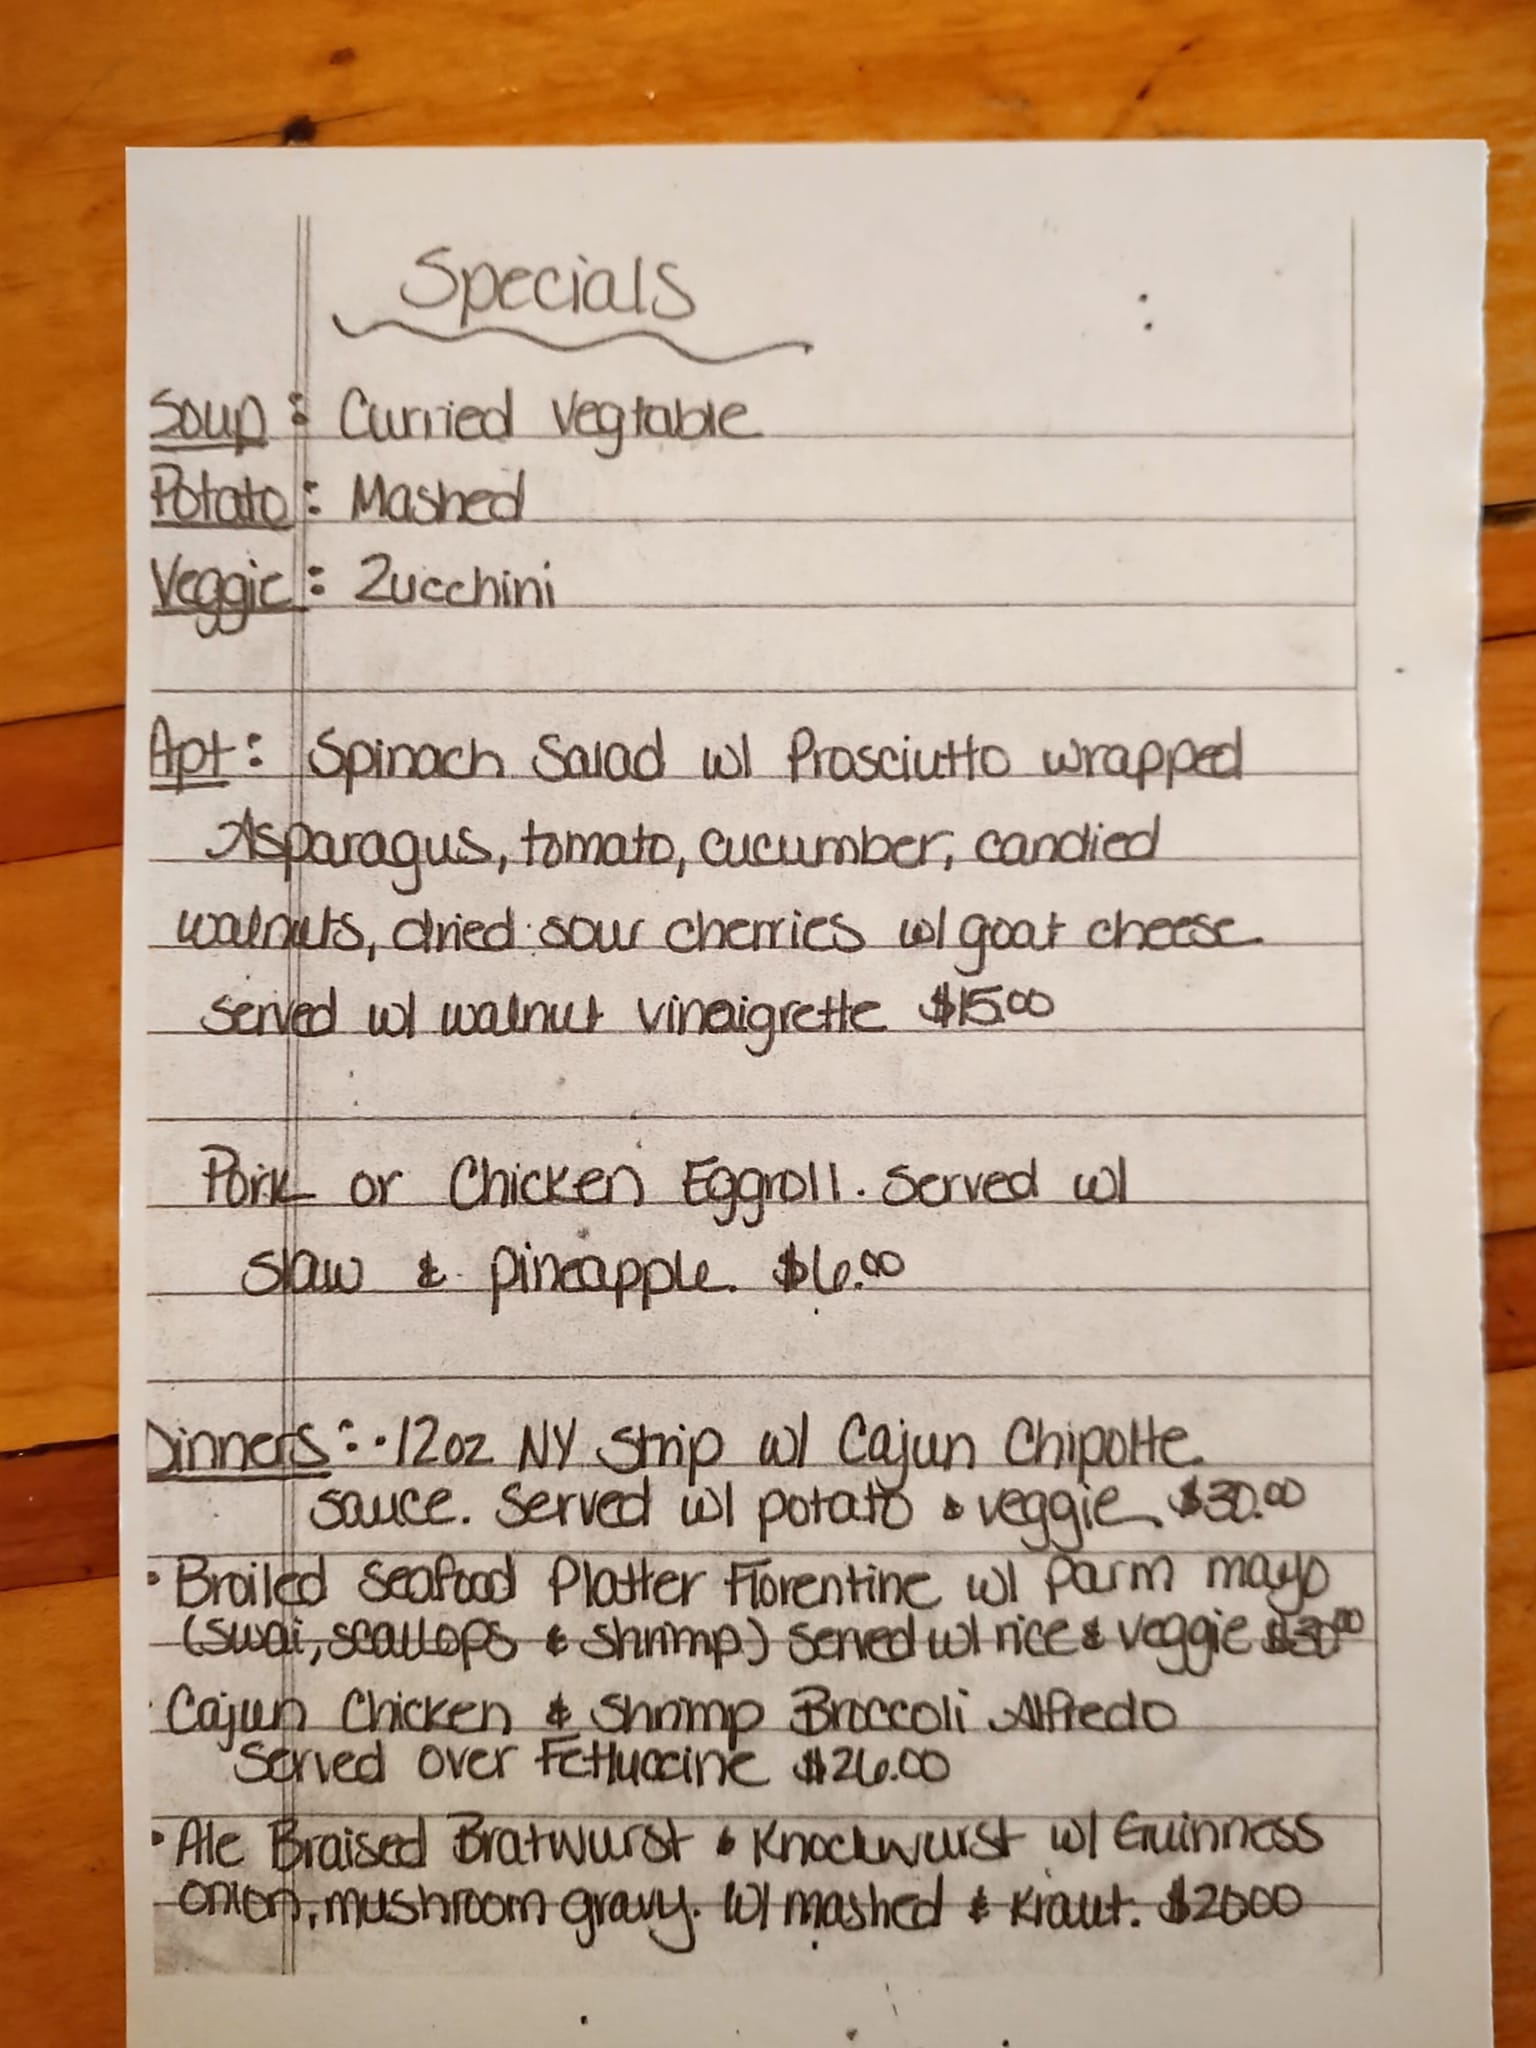 Specials
Soup: Curried Vegtable
Potato: Mashed
Veggie: Zucchini
Apt: Spinach Salad w/ Prosciutto wrapped
Asparagus, tomato, cucumber, candied
walnuts, dried sour cherries w/ goat cheese
served w/ walnut vinaigrette $15.00
Pork or Chicken Eggroll. Served w/
slaw & pineapple. $6.00
Dinners: • 12oz NY Strip w/ Cajun Chipotle
sauce. Served w/ potato & veggie $30.00
• Broiled Seafood Platter Florentine w/ Parm mayo
(swai, scallops & shrimp) served w/ rice & veggie $30.00
• Cajun Chicken & Shrimp Broccoli Alfredo
Served over Fettuccine $26.00
• Ale Braised Bratwurst & Knockwurst w/ Guinness
onion, mushroom gravy. W/ mashed & Kraut. $20.00